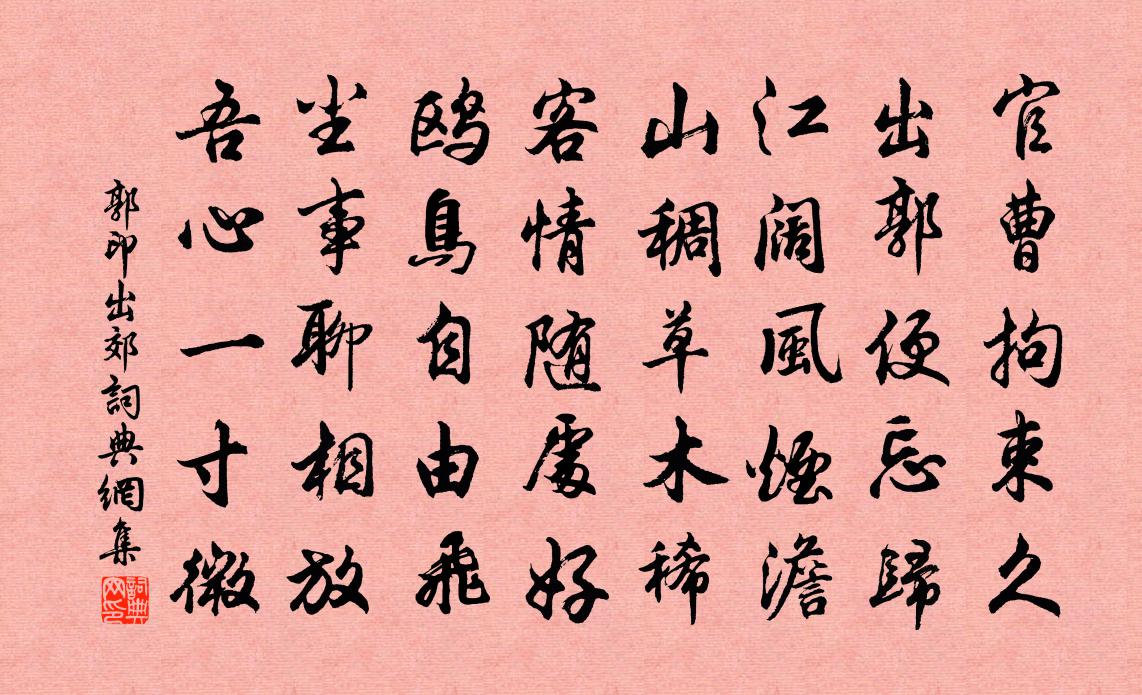 官曹拘束久
出郭便忘歸
江闊風煙澹
山稠草木稀
客情随處好
鸥鳥自由飛
坐事聊相放
吾心一寸微
郭印出郊詞典網集
詞典网印